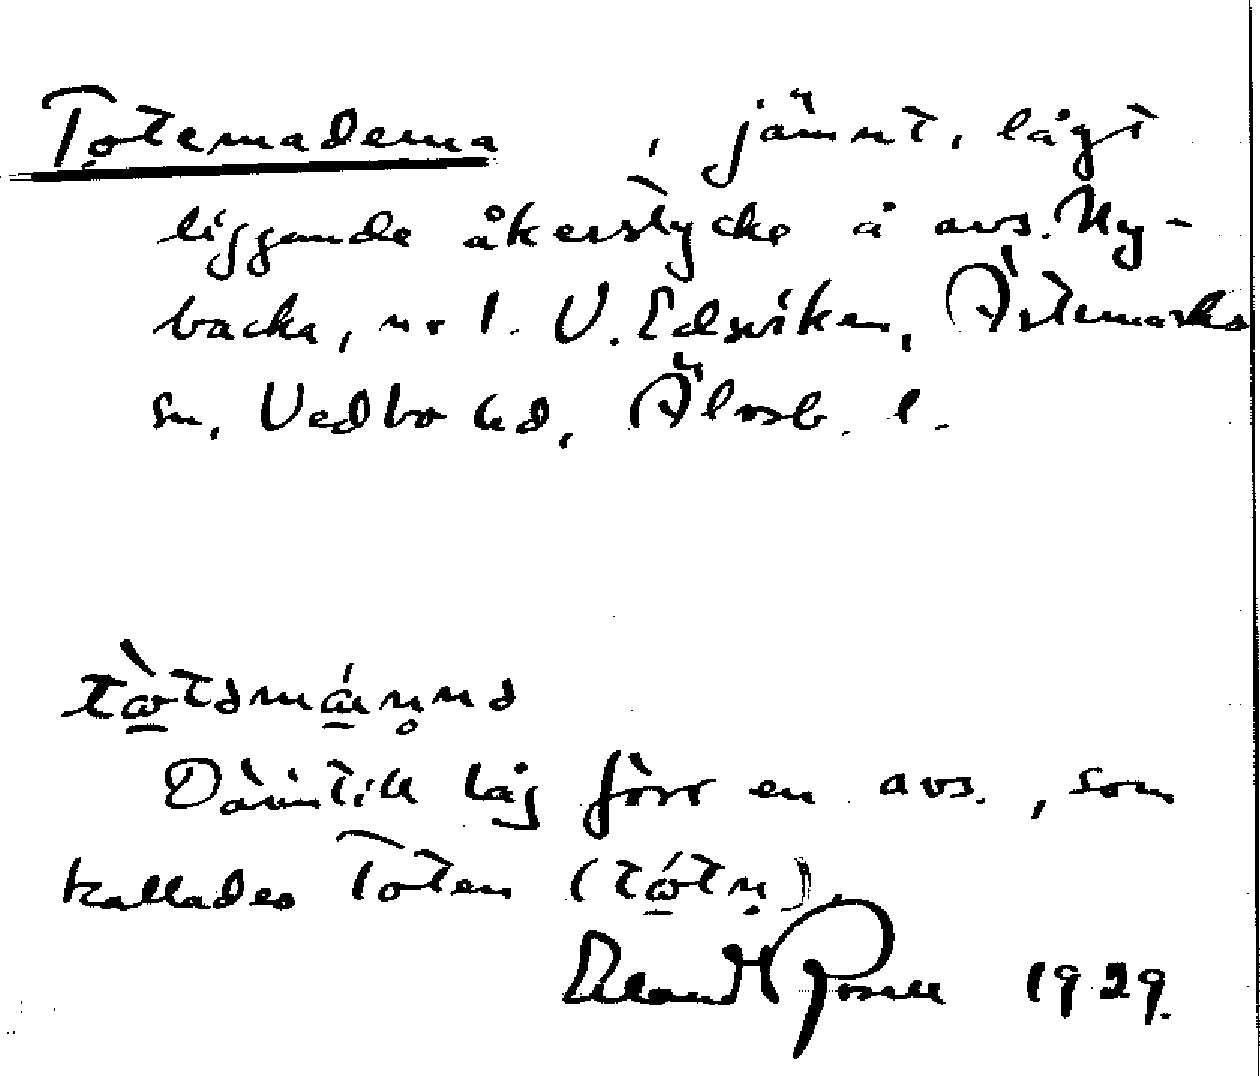 Totemaderna, jämnt, lågt
liggande åkerstycke å avs. Ny-
backa, nr 1. V. Edsviken, Ärtemarks
sn, Vedbo hd, Älvsb. l.
Därintill låg förr en avs., som
kallades Toten (tώ̲tn̥).
Erland Rosell 1929.